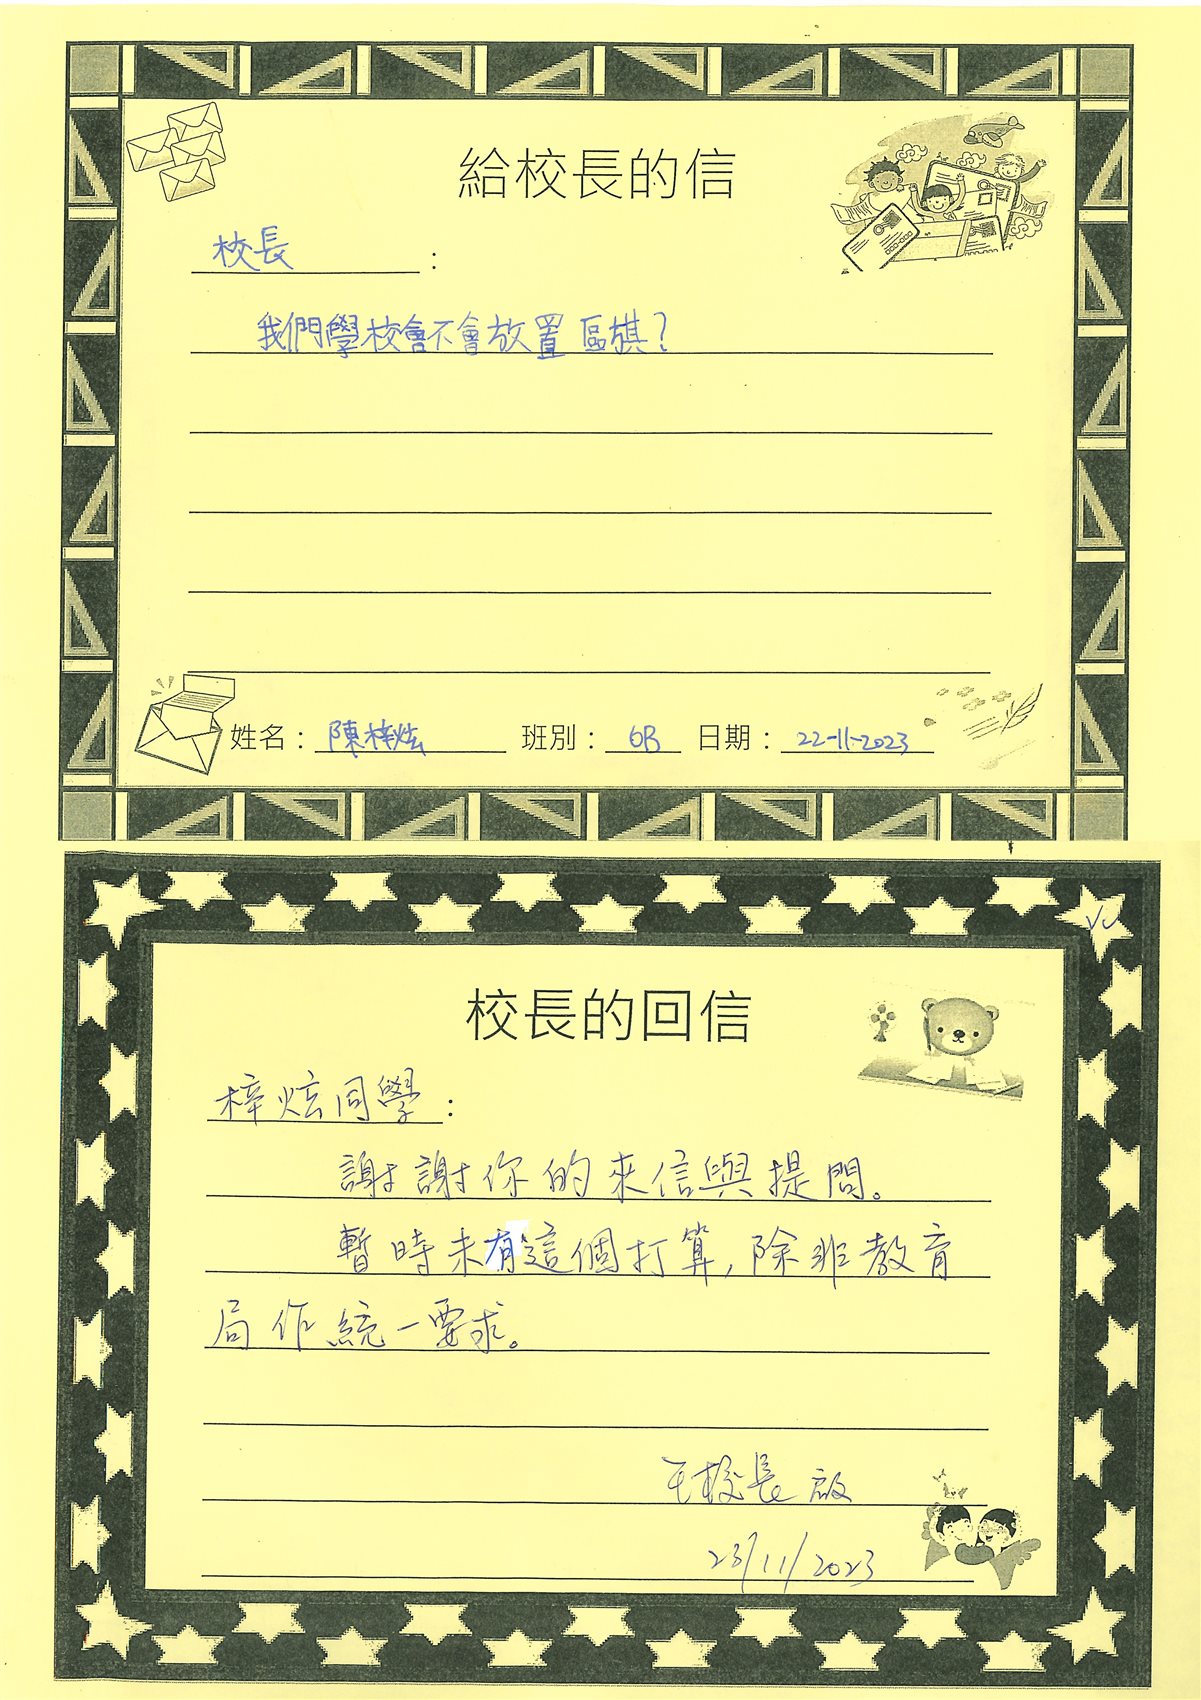 給校長的信
校長：
我們學校會不會放置區旗？
姓名：陳梓炫 班別：6B 日期：22-11-2023
校長的回信
梓炫同學：
謝謝你的來信與提問。
暫時未有這個打算，除非教育
局作統一要求。
王校長啟
23/11/2023